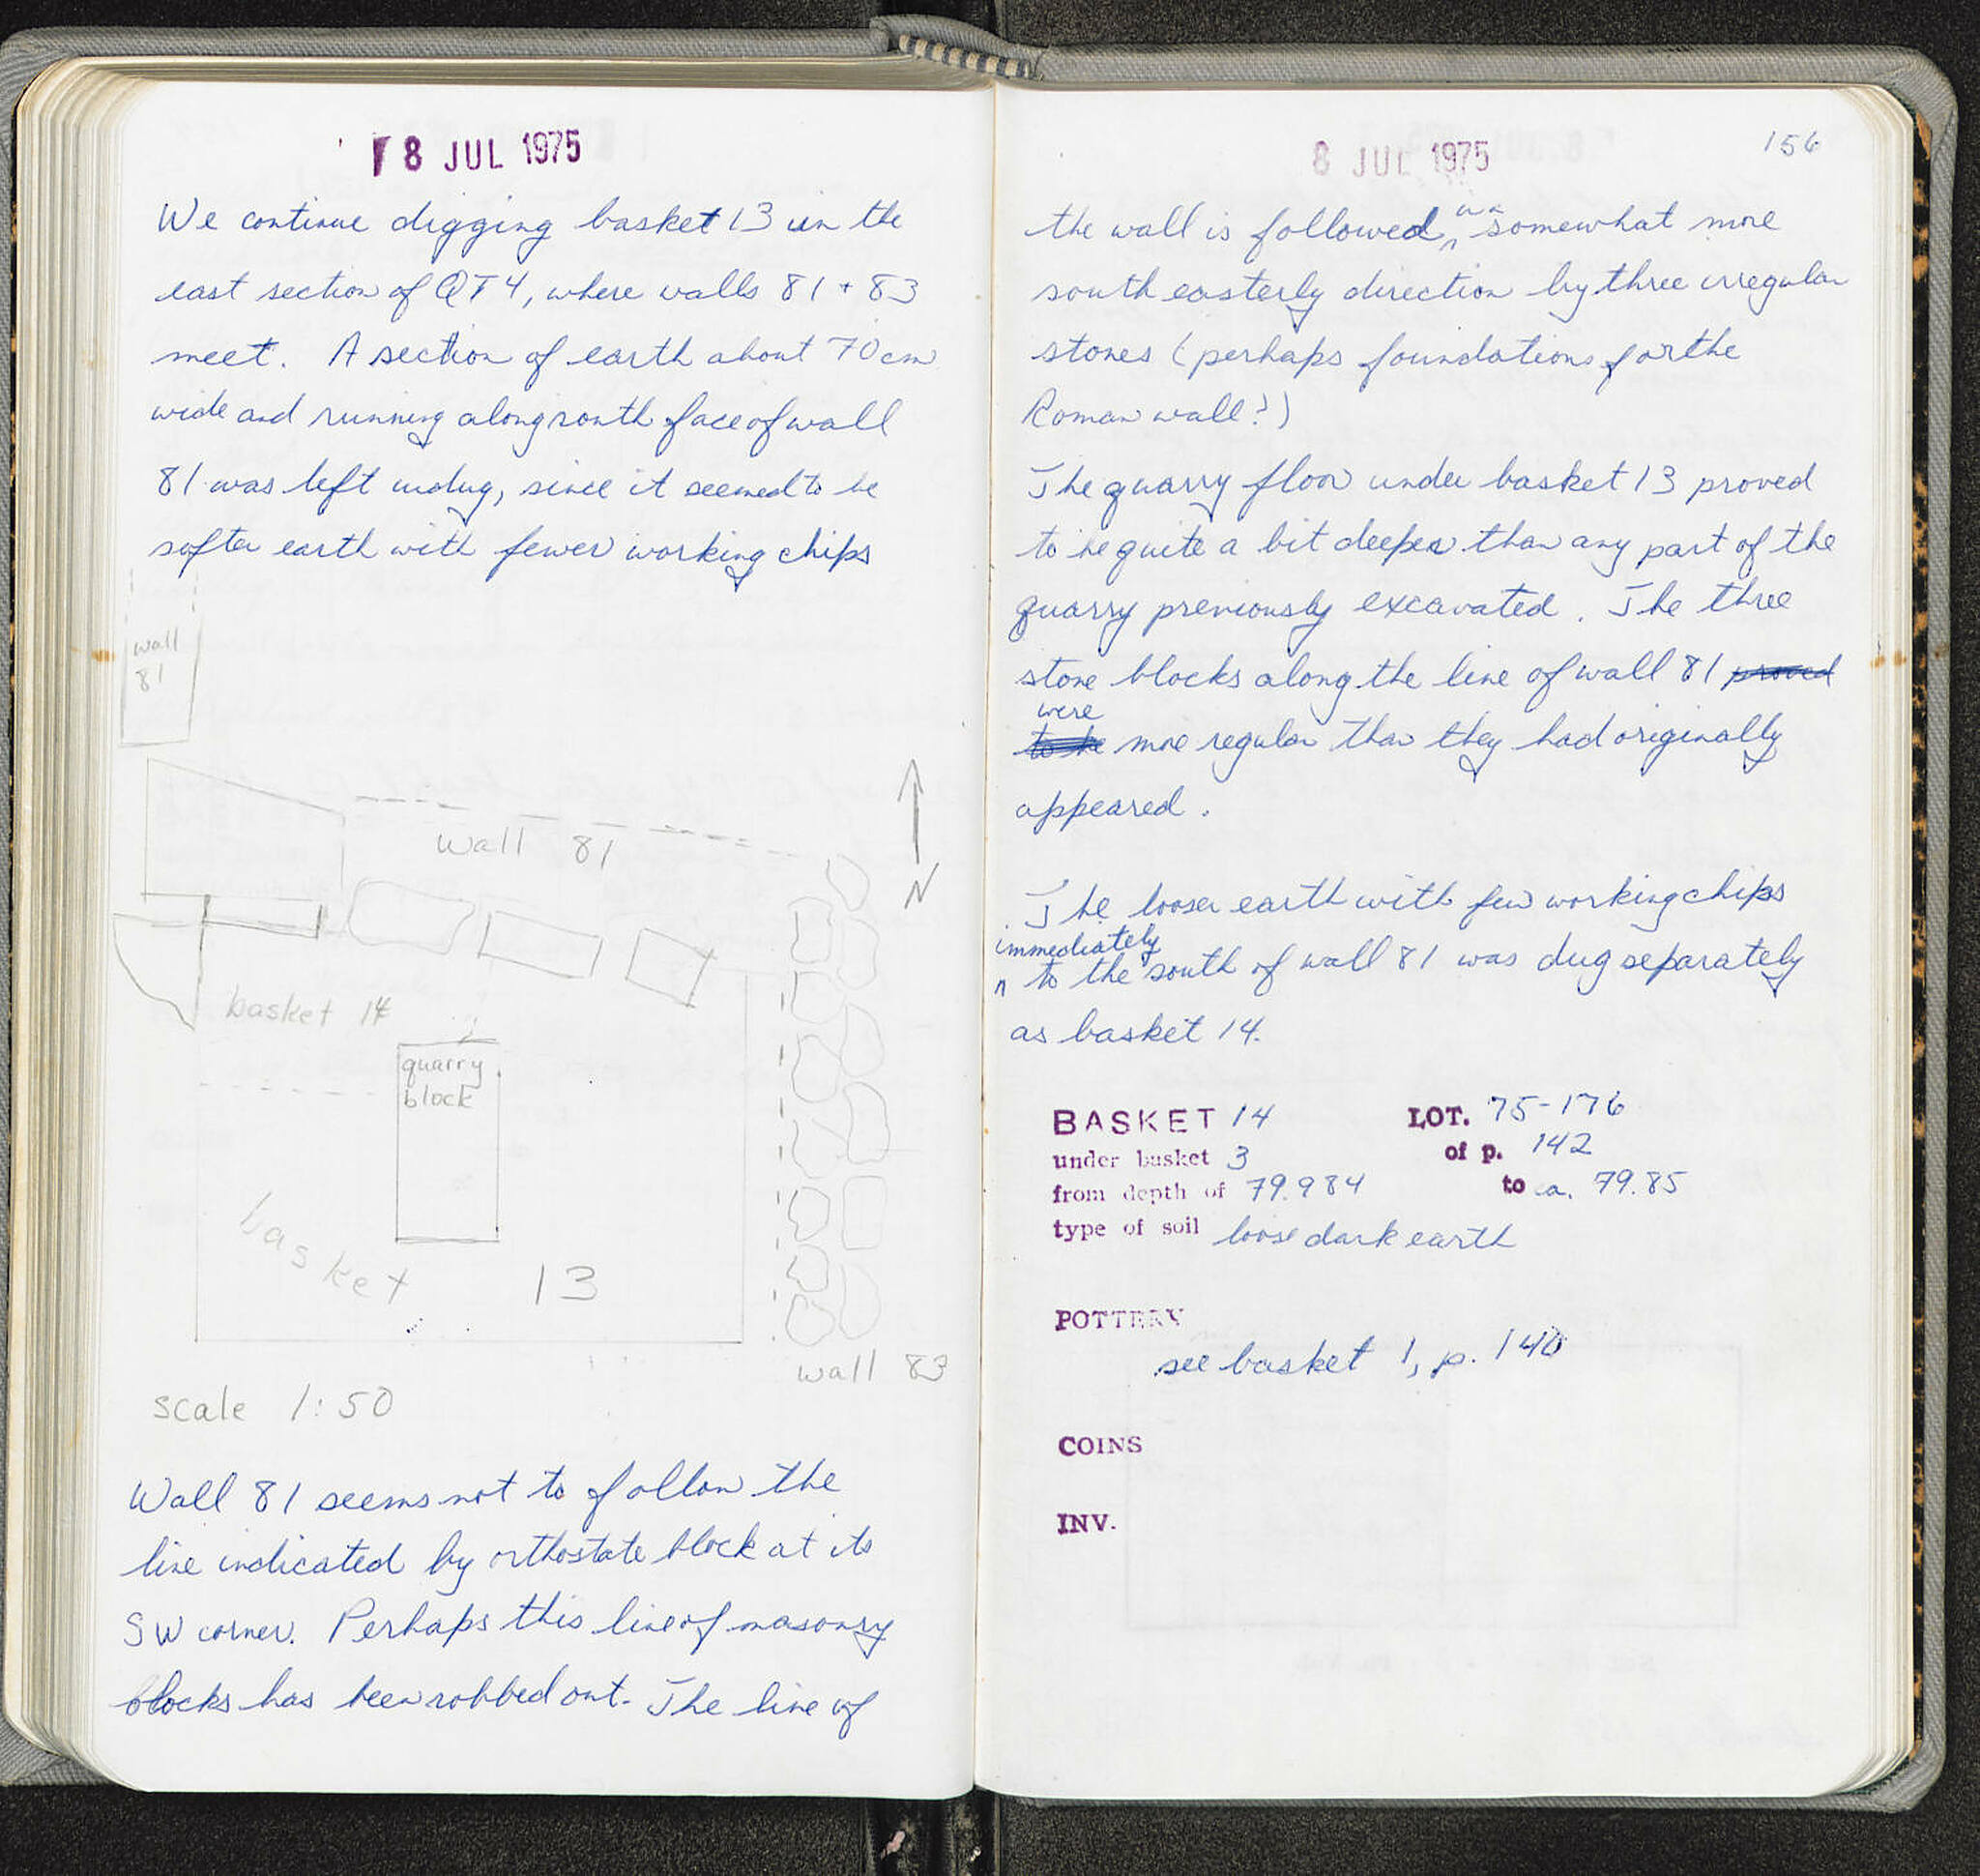 8 JUL 1975
We continue digging basket 13 in the
east section of QT4, where walls 81 + 83
meet. A section of earth about 70cm
wide and running along south face of wall
81 was left undug, since it seemed to be
softer earth with fewer working chips
wall
81
wall 81
N
basket 14
quarry
block
basket 13
wall 83
scale 1:50
Wall 81 seems not to follow the
line indicated by orthostate block at its
SW corner. Perhaps this line of masonry
blocks has been robbed out. The line of
8 JUL 1975
156
the wall is followed in a somewhat more
south easterly direction by three irregular
stones (perhaps foundations for the
Roman wall?)
The quarry floor under basket 13 proved
to be quite a bit deeper than any part of the
quarry previously excavated. The three
stone blocks along the line of wall 81 proved
were
to be more regular than they had originally
appeared.
The looser earth with few working chips
immediately
to the south of wall 81 was dug separately
as basket 14.
BASKET 14 LOT. 75-176
under basket 3 of p. 142
from depth of 79.984 to ca. 79.85
type of soil loose dark earth
POTTERY
see basket 1, p. 140
COINS
INV.